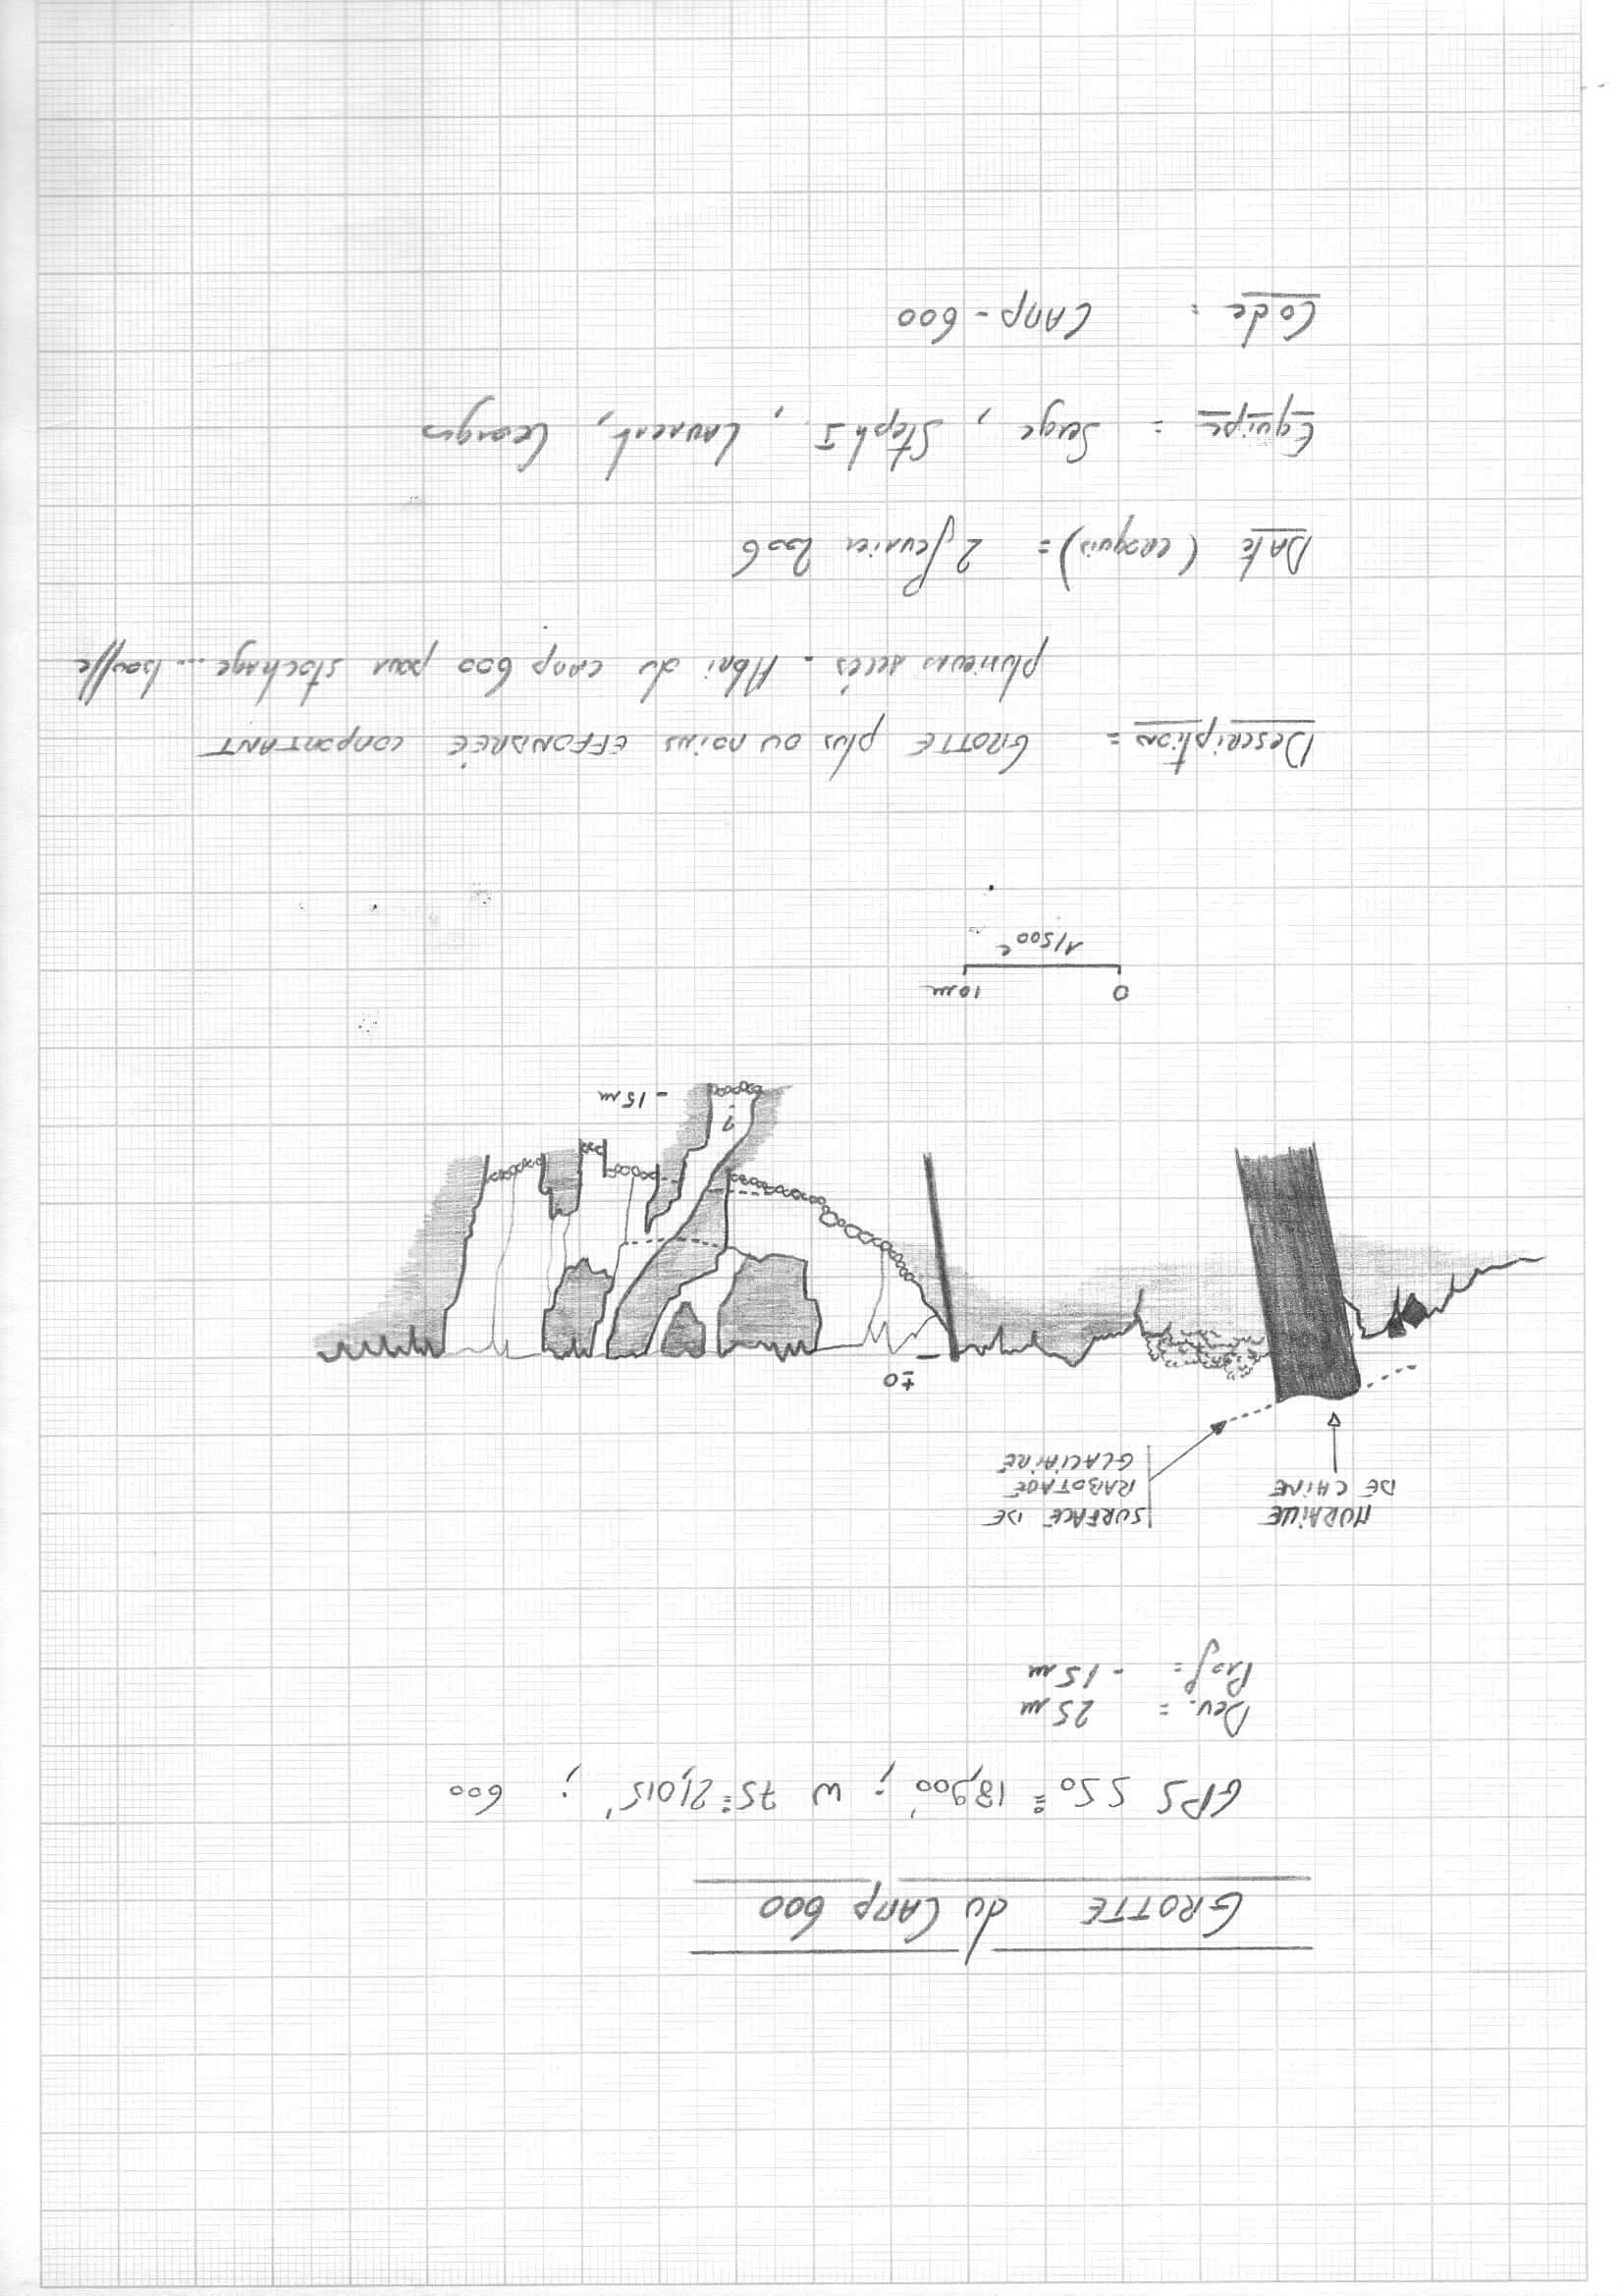 GROTTE du CAMP 600
GPS S 50° 18,900' ; W 75° 21,015' ; 600
Dev. = 25 m
Prof = - 15 m
MURAILLE
DE CHINE
SURFACE DE
RABOTAGE
GLACIAIRE
± 0
?
- 15 m
0 10 m
1/500e
Description = GROTTE plus ou moins EFFONDRÉE COMPORTANT
plusieurs accès. Abri du camp 600 pour stockage ... bouffe
Date (croquis) = 2 février 2006
Equipe = Serge, Steph J., Laurent, Georges
Code = CAMP - 600